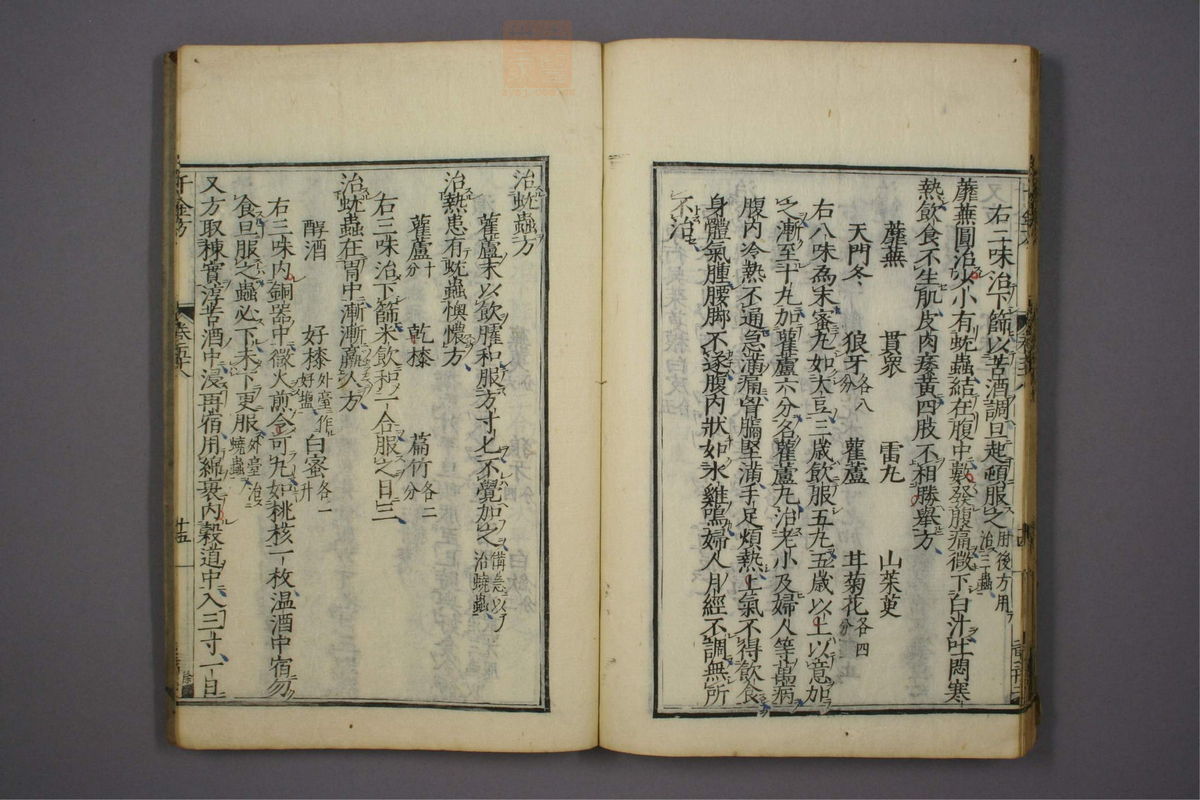 右二味治下篩以苦酒調旦起頓服之肘後方用治三蟲
蘼蕪圓治少小有蚘蟲結在腹中數發腹痛微下白汁吐悶寒
熱飲食不生肌皮肉痿黃四肢不相勝舉方
蘼蕪 貫眾 雷丸 山茱萸
天門冬 狼牙各八分 雚蘆 甘菊花各四分
右八味為末蜜丸如大豆三歲飲服五丸五歲以上以意加
之漸至十丸加雚蘆六分名雚蘆丸治老小及婦人等萬病
腹內冷熱不通急滿痛胷膈堅滿手足煩熱上氣不得飲食
身體氣腫腰腳不遂腹內狀如水雞鳴婦人月經不調無所
不治
治蚘蟲方
雚蘆末以飲臛和服方寸匕不覺加之備急以治蟯蟲
治熱患有蚘蟲懊憹方
雚蘆十分 乾㯃 萹竹各二分
右三味治下篩米飲和一合服之日三
治蚘蟲在胃中漸漸羸人方
醇酒 好㯃外臺作好鹽 白蜜各一升
右三味內銅器中微火煎令可丸如桃核一枚溫酒中宿勿
食旦服之蟲必下未下更服外臺治蟯蟲
又方取楝實淳苦酒中浸再宿用綿裹內穀道中入三寸一日
千金方
卷五十八
十五